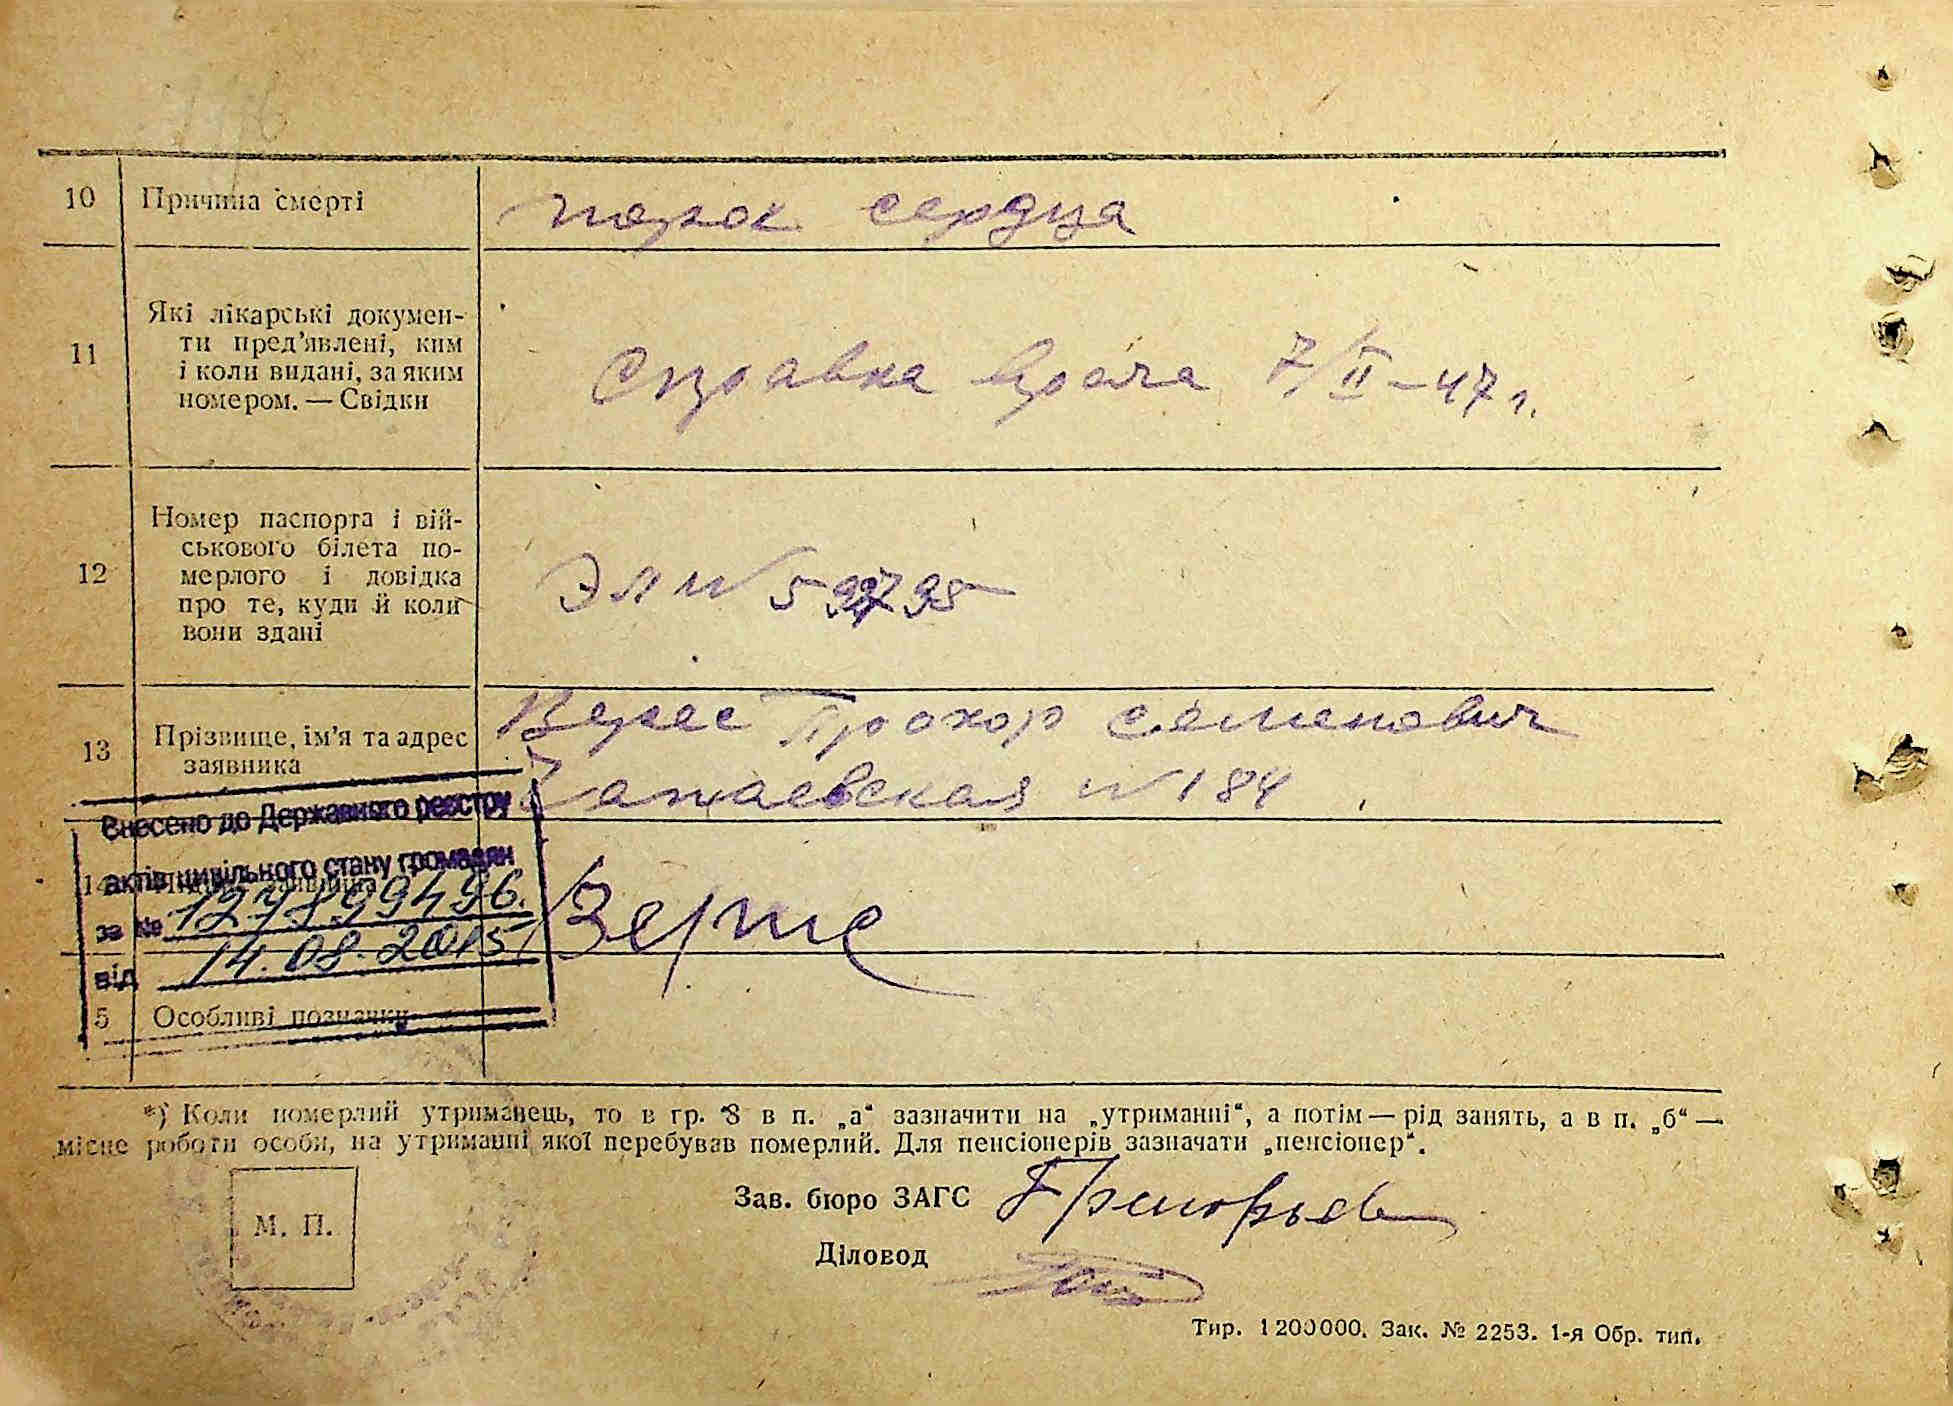 10 Причина смерті порок сердца
11 Які лікарські докумен-
ти пред’явлені, ким
і коли видані, за яким
номером. — Свідки
Справка врача 7/II – 47 г.
12 Номер паспорта і вій-
ськового білета по-
мерлого і довідка
про те, куди й коли
вони здані
13 Прізвище, ім’я та адрес
заявника
Верес Прохор Семенович
№ 184
Внесено до Державного реєстру
актів цивільного стану громадян
14
за №
від 14.08.2015
5 Особливі позначки
*) Коли померлий утриманець, то в гр. 8 в п. „а“ зазначити на „утриманні“, а потім — рід занять, а в п. „б“ —
місце роботи особи, на утриманні якої перебував померлий. Для пенсіонерів зазначати „пенсіонер“.
М. П.
Зав. бюро ЗАГС
Діловод
Тир. 1200000. Зак. № 2253. 1-я Обр. тип.